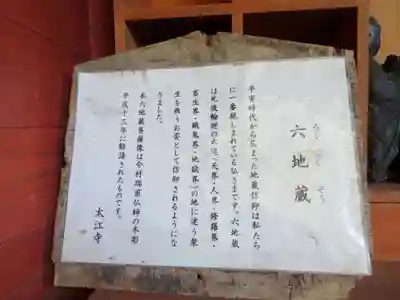 六地蔵
ろくじぞう
平安時代から広まった地蔵信仰は私たち
に一番親しまれている仏さまです。六地蔵
は死後輪廻の六道(天界・人界・修羅界・
畜生界・餓鬼界・地獄界)の地に迷う衆
生を救うお姿として信仰されるようにな
りました。
本六地蔵菩薩像は今村 仏師の木彫
平成十三年に勧請されたものです。
太江寺